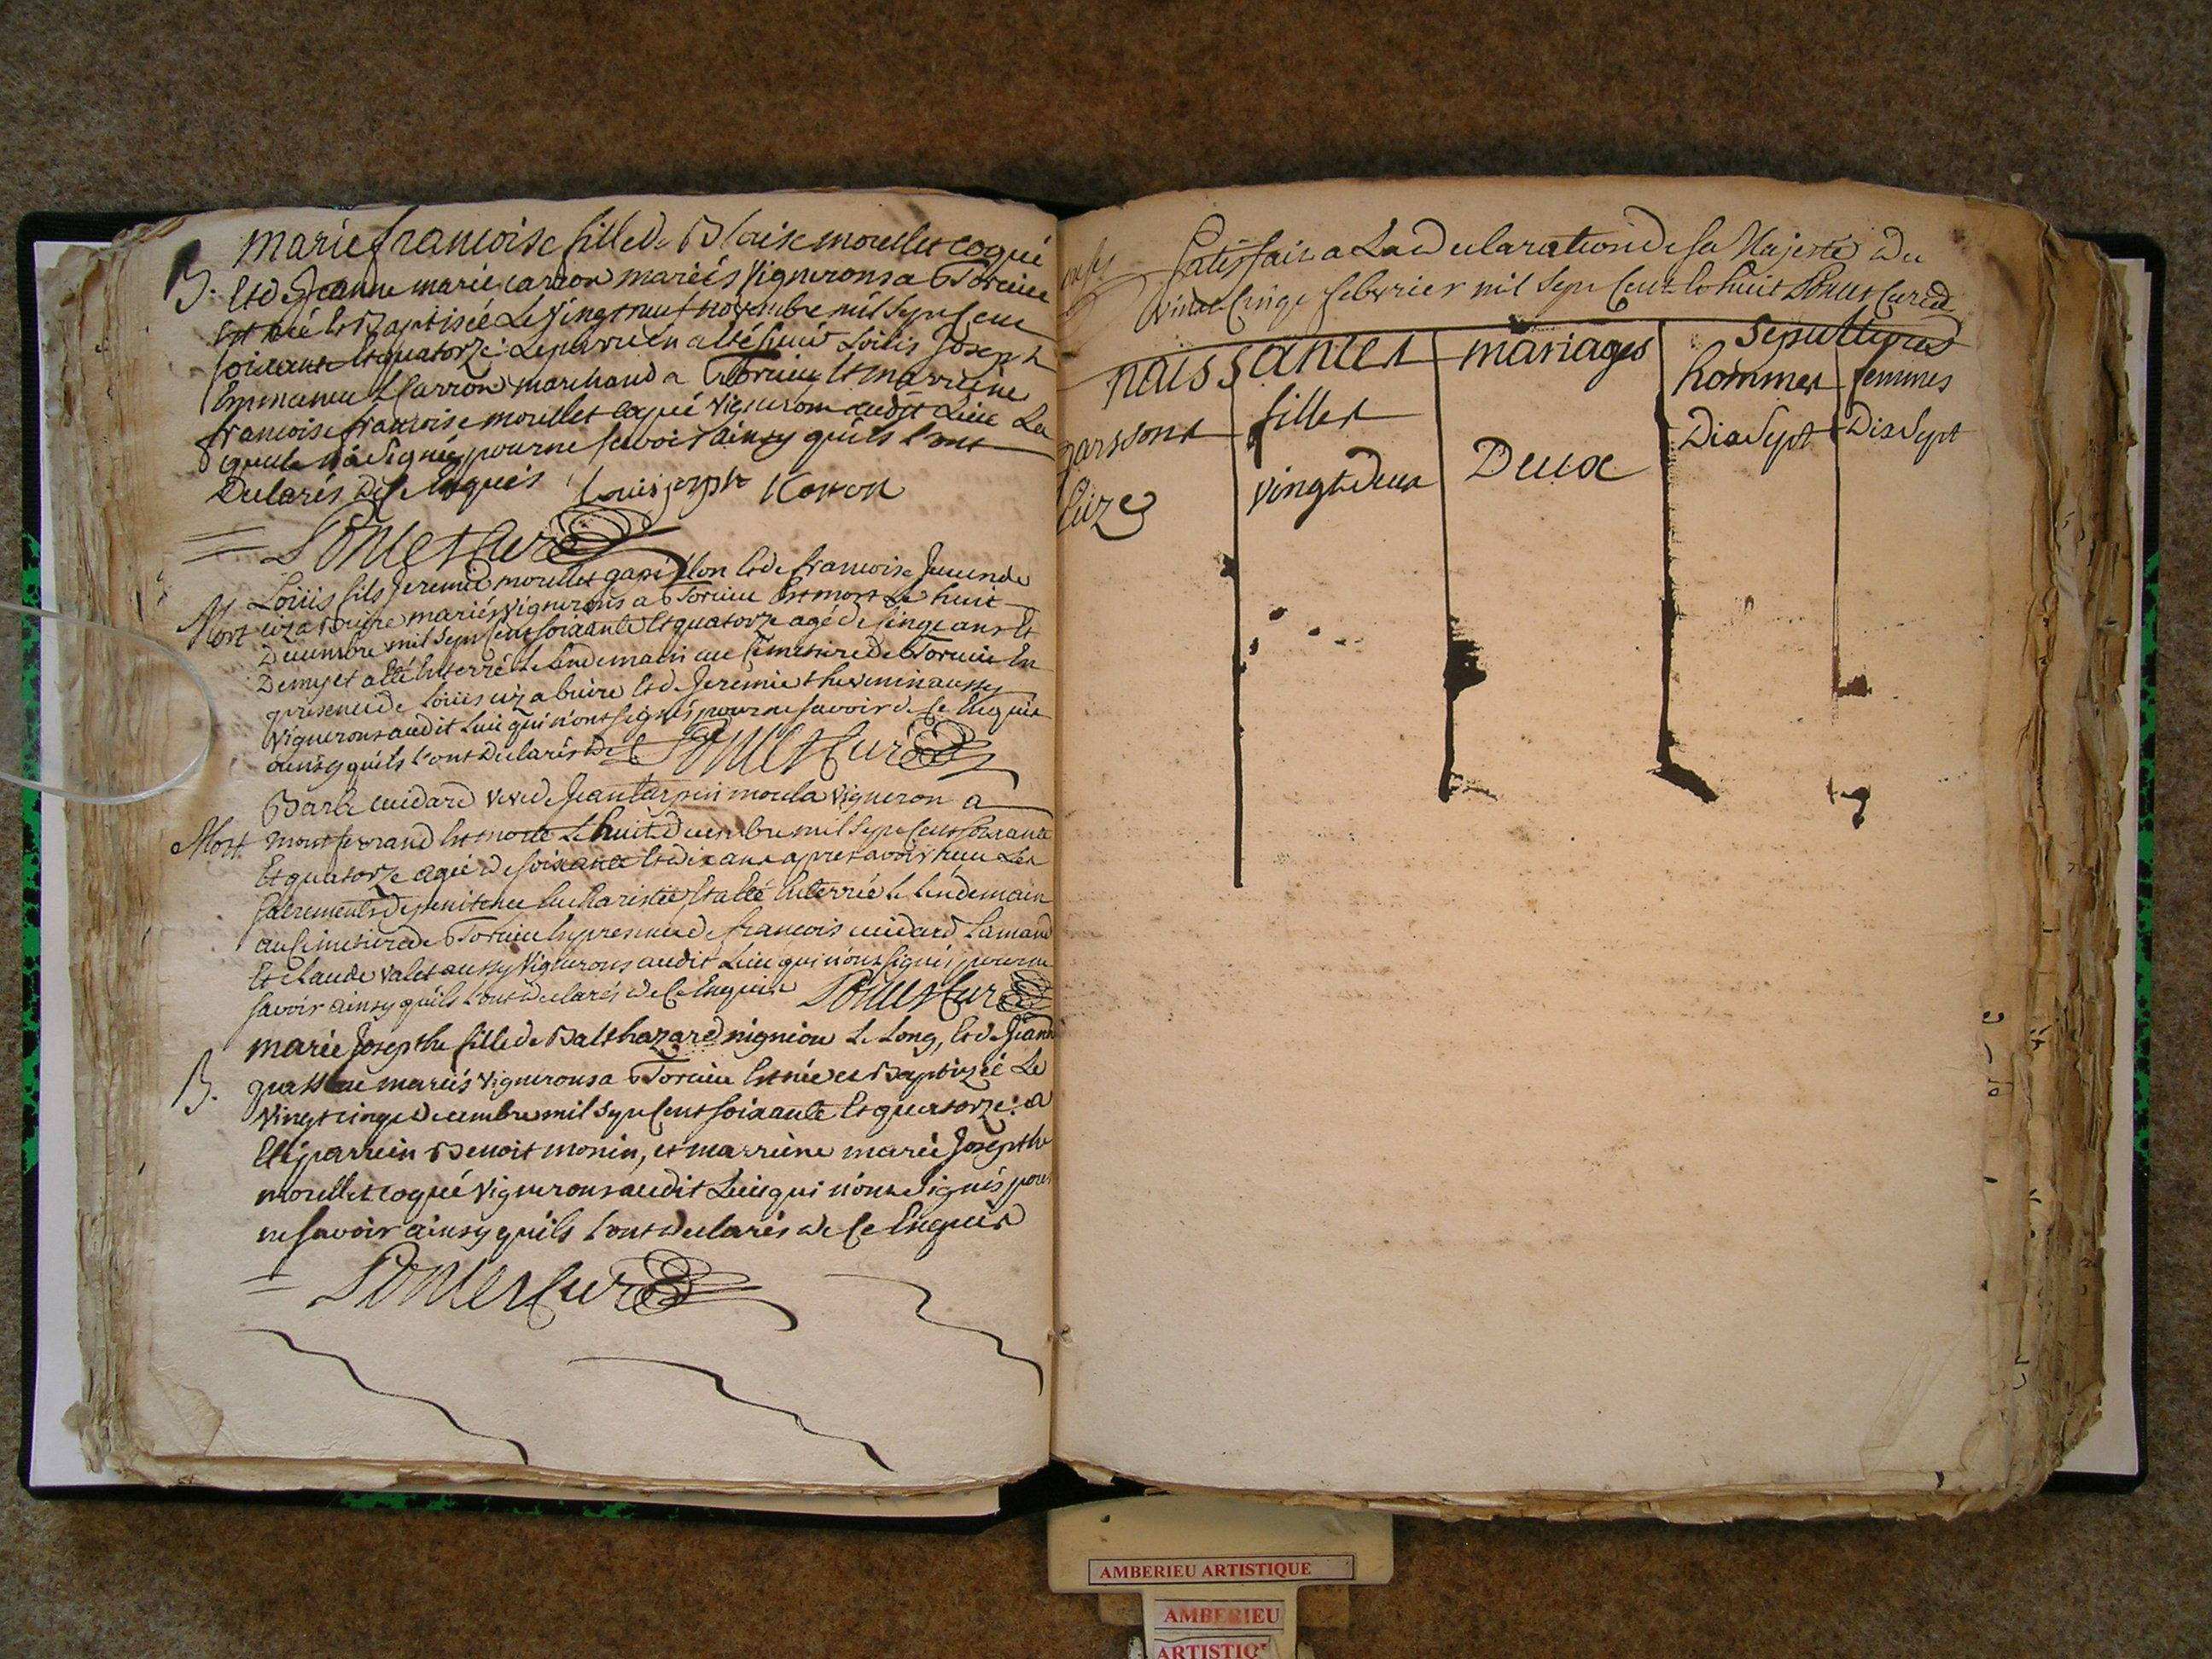 B. marie francoise fille de Blaise morellet coqué
Et de Jeanne marie carron mariés vignerons a Torcieu
Est née Et Baptisée Le vingt neuf novembre mil Sept Cent
soixante Et quatorze: Le parrein a Eté sieur Loüis Joseph
Emmanuel Carron marchand a Torcieu Et marreine
francoise francoise morellet coqué vigneron audit Lieu La
quelle n'a Signé pour ne scavoir ainsy qu'ils L'ont
Declarés De ce Enquis Louis joseph Karron
Ponlet Curé
Mort Loüis fils Jeremie morellet papillon Et de francoise Jeunende
cuzabuire mariés vignerons a Torcieu Est mort Le huit
Decembre mil Sept Cent soixante Et quatorze agé de Cinqe ans Et
Demy et a Eté Enterré Le Lendemain au Cimetiere de Torcieu En
presence de Loüis cuzabuire Et de Jeremie thevenin aussy
vignerons audit Lieu qui n'ont signés pour ne savoir de Ce Enquis
ainsy qu'ils L'ont Declarés Ponlet Curé
Mort Barbe cuidard veve de Jean tarpin moula vigneron a
montferrand Est morte Le huit Decembre mil Sept Cent soixante
Et quatorze agée de soixante Et dix ans apres avoir reçu Les
sacrements de penitence Eucharistie, Et a Eté Enterrée Le Lendemain
au Cimetiere de Torcieu En presence de francois cuidard Lamand
Et claude valet aussy vignerons audit Lieu qui n'ont signés pour ne
savoir ainsy qu'ils L'ont declarés de Ce Enquis Ponlet Curé
B. marie Josepthe fille de Balthazard nigniou Le Long, Et de Jeanne
mariés vignerons a Torcieu Est née et Baptizée Le
vingt cinqe Decembre mil Sept Cent soixante Et quatorze: a
Eté parrein Benoit monin, et marreine marie Josepthe
morellet coqué vignerons audit Lieu qui n'ont Signés pour
ne savoir ainsy qu'ils L'ont declarés de Ce Enquis
Ponlet Curé
Satisfait a La Declaration de sa Majesté Du
vingt Cinqe febvrier mil Sept Cent Et huit Ponlet Curé
naissances mariages Sepultures
garssons filles hommes femmes
Seize vingt Deux Deux Dix Sept Dix Sept
AMBERIEU ARTISTIQUE
AMBERIEU
ARTISTIQ